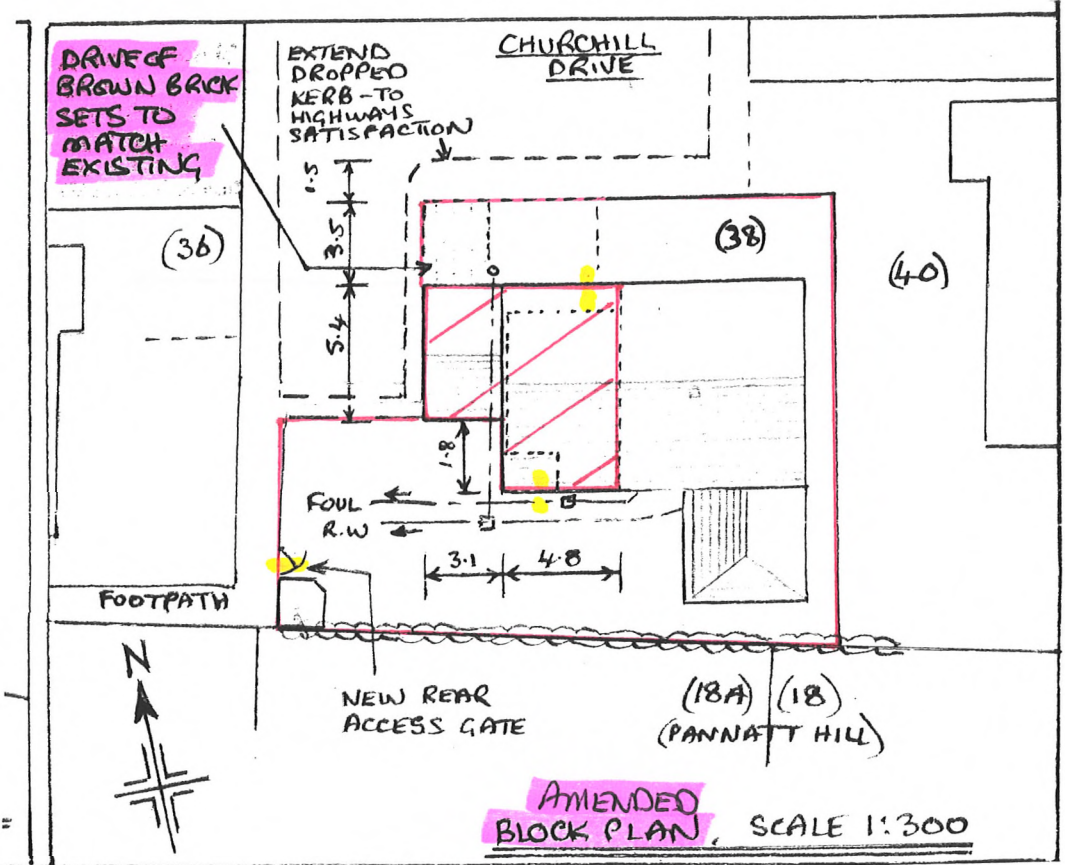 DRIVE OF
BROWN BRICK
SETS TO
MATCH
EXISTING
EXTEND
DROPPED
KERB-TO
HIGHWAYS
SATISFACTION
CHURCHILL
DRIVE
1.5
3.5
5.4
(36)
(38)
(40)
1.8
FOUL
R.W
3.1
4.8
FOOTPATH
N
NEW REAR
ACCESS GATE
(18A) (18)
(PANNATT HILL)
AMENDED
BLOCK PLAN. SCALE 1:300